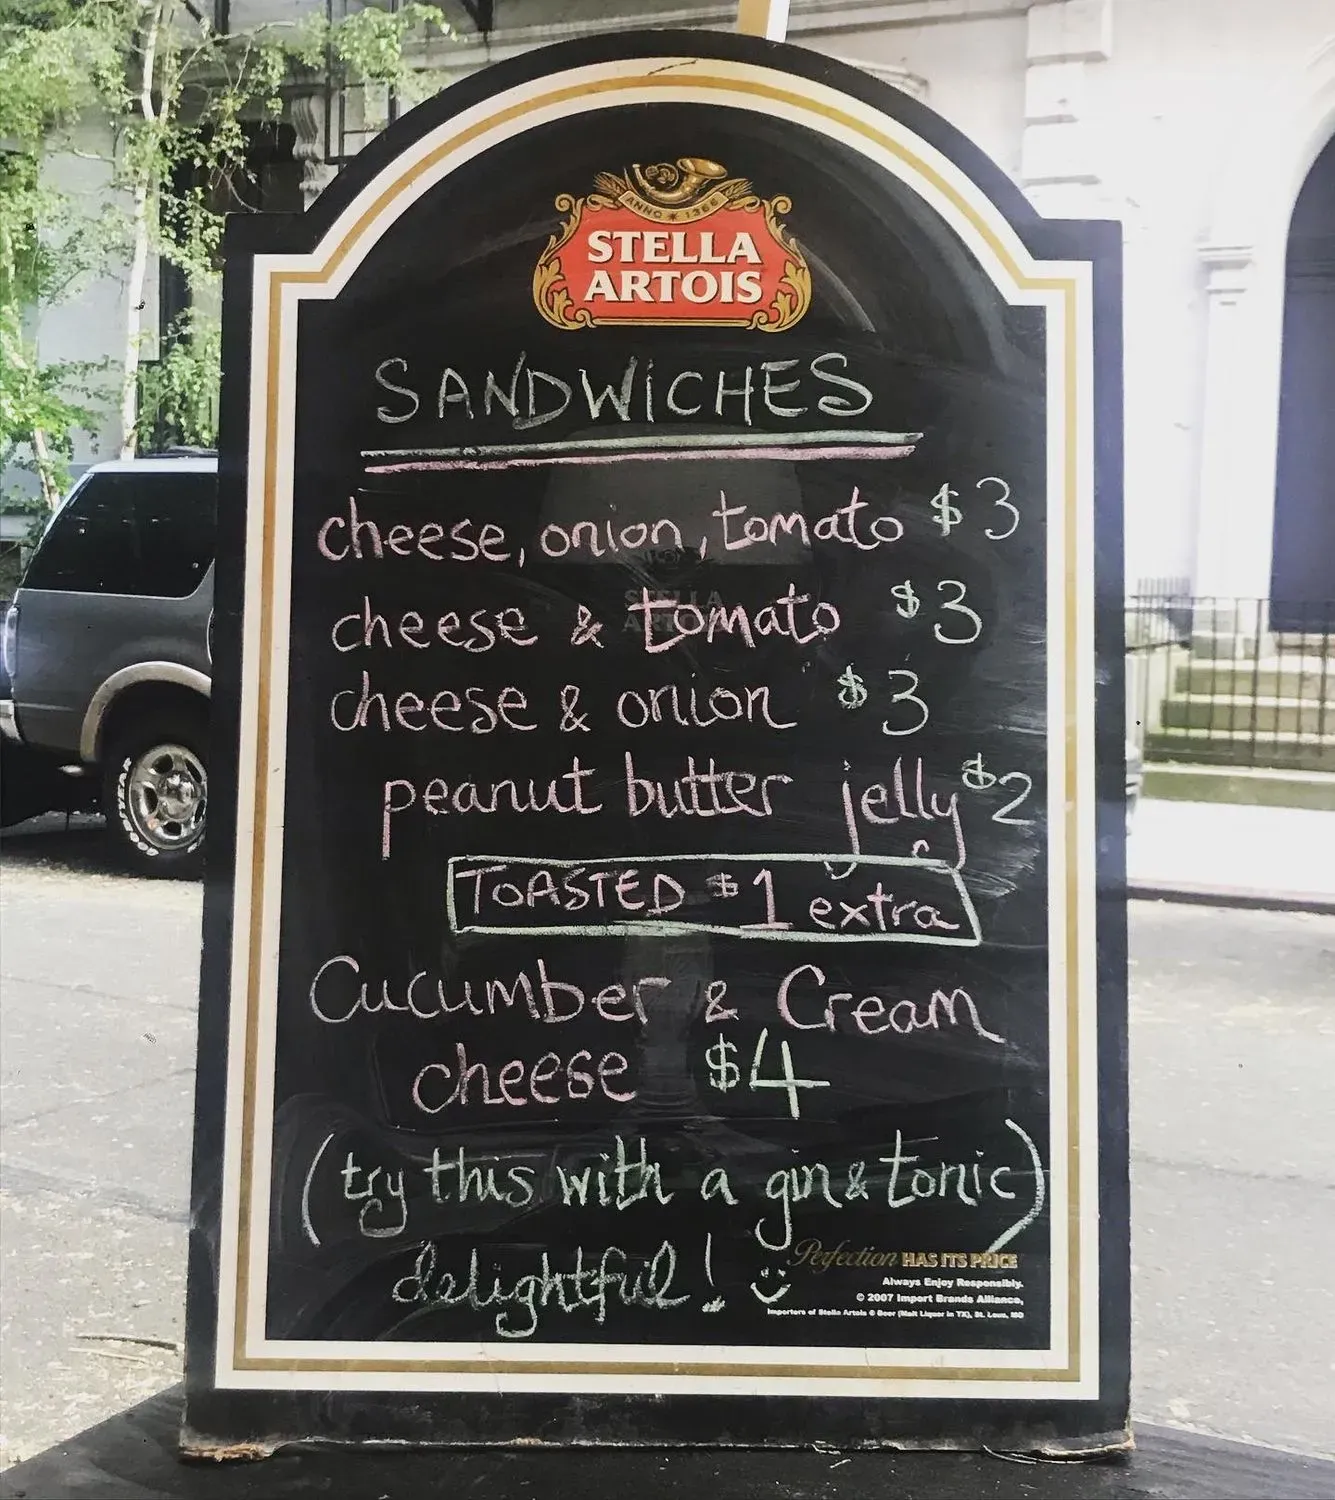 ANNO * 1366
STELLA
ARTOIS
SANDWiCHES
cheese, onion, tomato $3
cheese & tomato $3
cheese & onion $3
peanut butter jelly $2
TOASTED $1 extra
Cucumber & Cream
cheese $4
(try this with a gin & tonic)
delightful!
Perfection HAS ITS PRICE
Always Enjoy Responsibly.
© 2007 Import Brands Alliance,
Importers of Stella Artois ® Beer (Malt Liquor in TX), St. Louis, MO